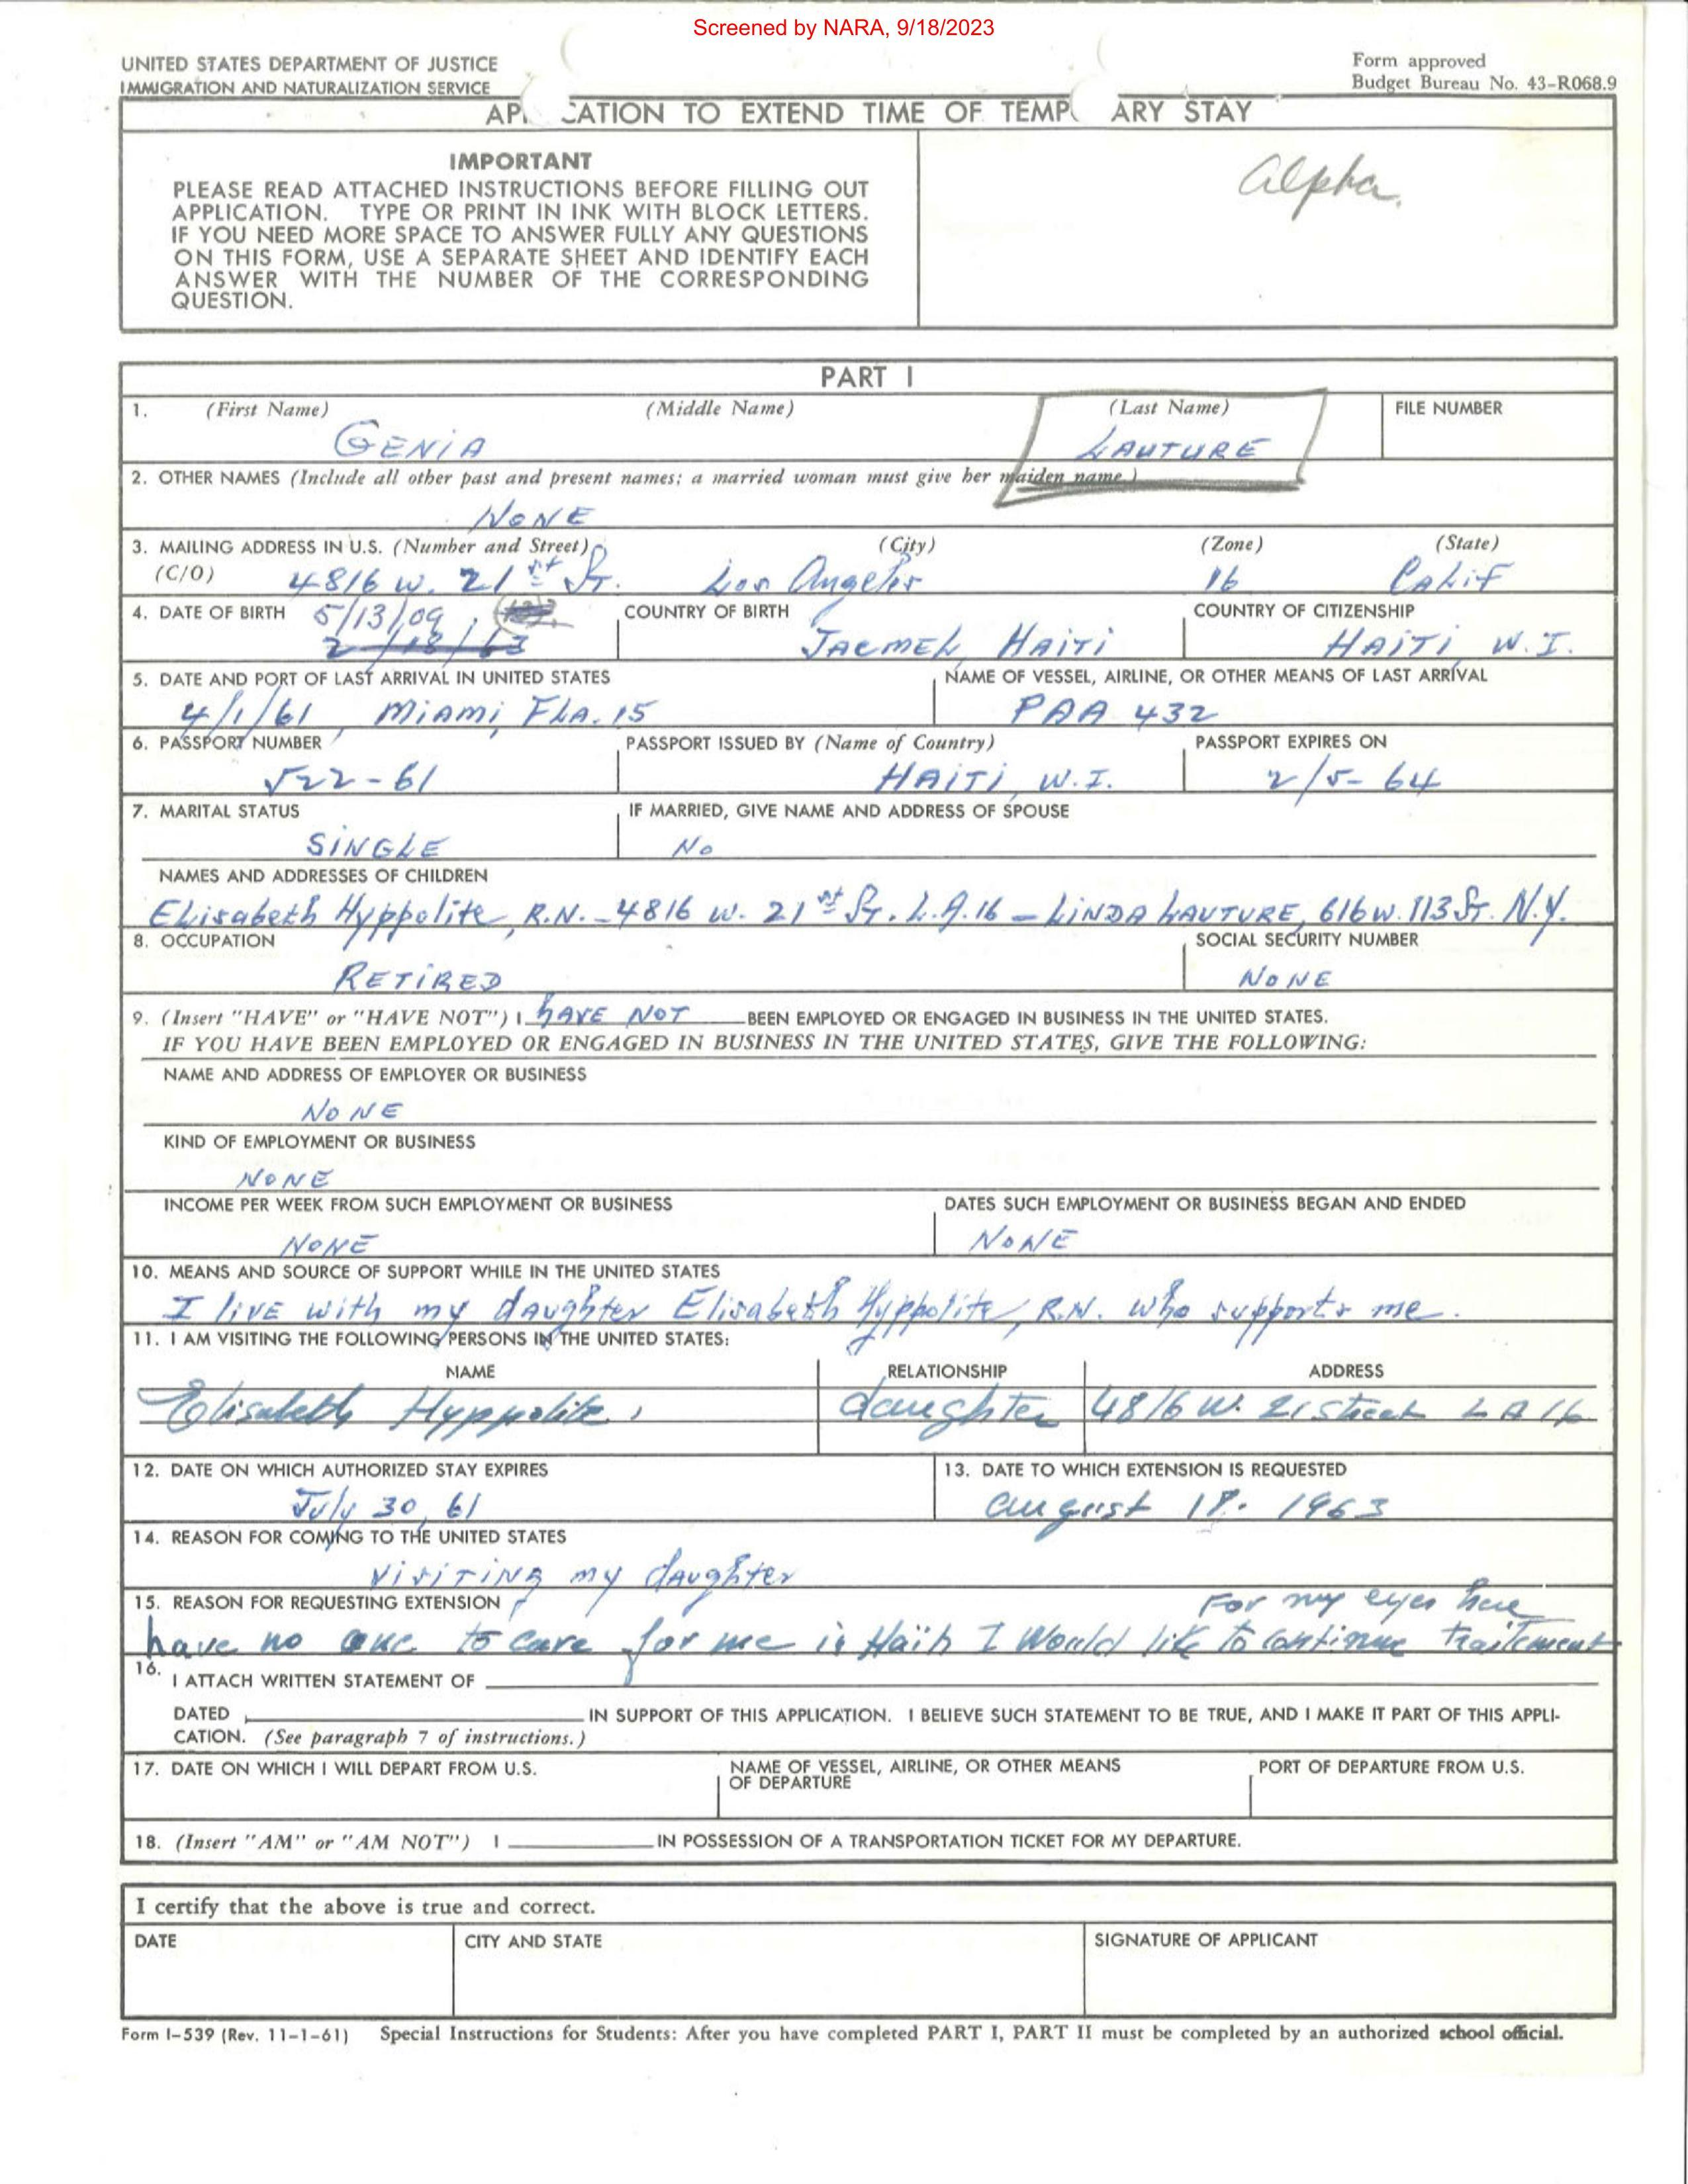 Screened by NARA, 9/18/2023
UNITED STATES DEPARTMENT OF JUSTICE
IMMIGRATION AND NATURALIZATION SERVICE
Form approved
Budget Bureau No. 43-R068.9
AP CATION TO EXTEND TIME OF TEMP ARY STAY
IMPORTANT
PLEASE READ ATTACHED INSTRUCTIONS BEFORE FILLING OUT
APPLICATION. TYPE OR PRINT IN INK WITH BLOCK LETTERS.
IF YOU NEED MORE SPACE TO ANSWER FULLY ANY QUESTIONS
ON THIS FORM, USE A SEPARATE SHEET AND IDENTIFY EACH
ANSWER WITH THE NUMBER OF THE CORRESPONDING
QUESTION.
Alpha.
PART I
1. (First Name) (Middle Name) (Last Name) FILE NUMBER
GENIA LAUTURE
2. OTHER NAMES (Include all other past and present names; a married woman must give her maiden name.)
NONE
3. MAILING ADDRESS IN U.S. (Number and Street) (City) (Zone) (State)
(C/O) 4816 W. 21st St. Los Angeles 16 CALIF
4. DATE OF BIRTH 5/13/09 COUNTRY OF BIRTH COUNTRY OF CITIZENSHIP
2/18/63 JACMEL HAITI HAITI W.I.
5. DATE AND PORT OF LAST ARRIVAL IN UNITED STATES NAME OF VESSEL, AIRLINE, OR OTHER MEANS OF LAST ARRIVAL
4/1/61, MIAMI, FLA. 15 PAA 432
6. PASSPORT NUMBER PASSPORT ISSUED BY (Name of Country) PASSPORT EXPIRES ON
522-61 HAITI, W.I. 2/5-64
7. MARITAL STATUS IF MARRIED, GIVE NAME AND ADDRESS OF SPOUSE
SINGLE No
NAMES AND ADDRESSES OF CHILDREN
Elisabeth Hyppolite, R.N. - 4816 W. 21st St. L.A. 16 - LINDA LAUTURE, 616 W. 113 St. N.Y.
8. OCCUPATION SOCIAL SECURITY NUMBER
RETIRED NONE
9. (Insert "HAVE" or "HAVE NOT") I HAVE NOT BEEN EMPLOYED OR ENGAGED IN BUSINESS IN THE UNITED STATES.
IF YOU HAVE BEEN EMPLOYED OR ENGAGED IN BUSINESS IN THE UNITED STATES, GIVE THE FOLLOWING:
NAME AND ADDRESS OF EMPLOYER OR BUSINESS
NONE
KIND OF EMPLOYMENT OR BUSINESS
NONE
INCOME PER WEEK FROM SUCH EMPLOYMENT OR BUSINESS DATES SUCH EMPLOYMENT OR BUSINESS BEGAN AND ENDED
NONE NONE
10. MEANS AND SOURCE OF SUPPORT WHILE IN THE UNITED STATES
I live with my daughter Elisabeth Hyppolite, R.N. who supports me.
11. I AM VISITING THE FOLLOWING PERSONS IN THE UNITED STATES:
NAME RELATIONSHIP ADDRESS
Elisabeth Hyppolite, daughter 4816 W. 21 street L A 16
12. DATE ON WHICH AUTHORIZED STAY EXPIRES 13. DATE TO WHICH EXTENSION IS REQUESTED
July 30, 61 August 18. 1963
14. REASON FOR COMING TO THE UNITED STATES
Visiting my daughter
15. REASON FOR REQUESTING EXTENSION For my eyes here
have no one to care for me in Haiti I Would like to continue traitement
16. I ATTACH WRITTEN STATEMENT OF
DATED IN SUPPORT OF THIS APPLICATION. I BELIEVE SUCH STATEMENT TO BE TRUE, AND I MAKE IT PART OF THIS APPLI-
CATION. (See paragraph 7 of instructions.)
17. DATE ON WHICH I WILL DEPART FROM U.S. NAME OF VESSEL, AIRLINE, OR OTHER MEANS PORT OF DEPARTURE FROM U.S.
OF DEPARTURE
18. (Insert "AM" or "AM NOT") I IN POSSESSION OF A TRANSPORTATION TICKET FOR MY DEPARTURE.
I certify that the above is true and correct.
DATE CITY AND STATE SIGNATURE OF APPLICANT
Form I-539 (Rev. 11-1-61) Special Instructions for Students: After you have completed PART I, PART II must be completed by an authorized school official.